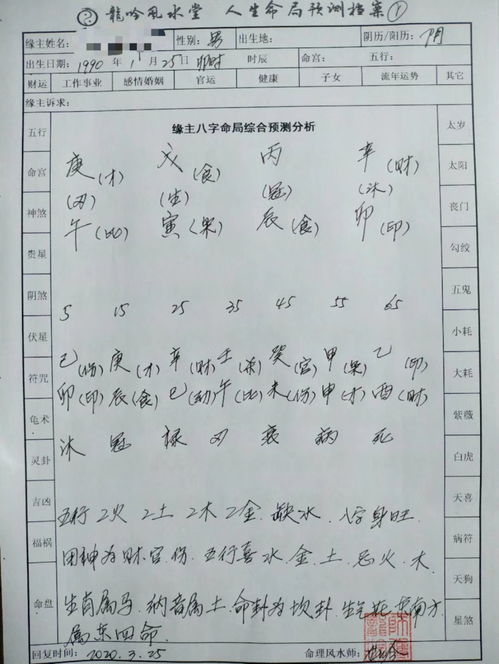 ② 龙吟风水堂 人生命局预测档案 ①
缘主姓名: 性别: 男 出生地: 阴历/阳历: 阴
出生日期: 1990 年 1 月 25 日 卯时 时辰 命宫: 五行:
财运 工作事业 感情婚姻 官运 健康 子女 流年运势 其它
缘主诉求:
五行 缘主八字命局综合预测分析 太岁
命宫 庚(才) 戊(食) 丙 辛(财) 太阳
神煞 (刃) (生) (冠) (沐) 丧门
贵星 午(比) 寅(枭) 辰(食) 卯(印) 勾绞
阴煞 五鬼
伏星 5 15 25 35 45 55 65 小耗
符咒 己(伤) 庚(才) 辛(财) 壬(杀) 癸(官) 甲(枭) 乙(印) 大耗
龟术 卯(印) 辰(食) 巳(劫) 午(比) 未(伤) 申(才) 酉(财) 紫薇
灵卦 沐 冠 禄 刃 衰 病 死 白虎
吉凶 五行 2火 2土 2木 2金 缺水 八字身旺 天喜
福祸 用神为财官伤 五行喜水、金、土 忌火、木 病符
天狗
命盘 生肖属马 纳音属土 命卦为坎卦 生气在东南方 星煞
属东四命
回复时间: 2020.3.25 命理风水师: